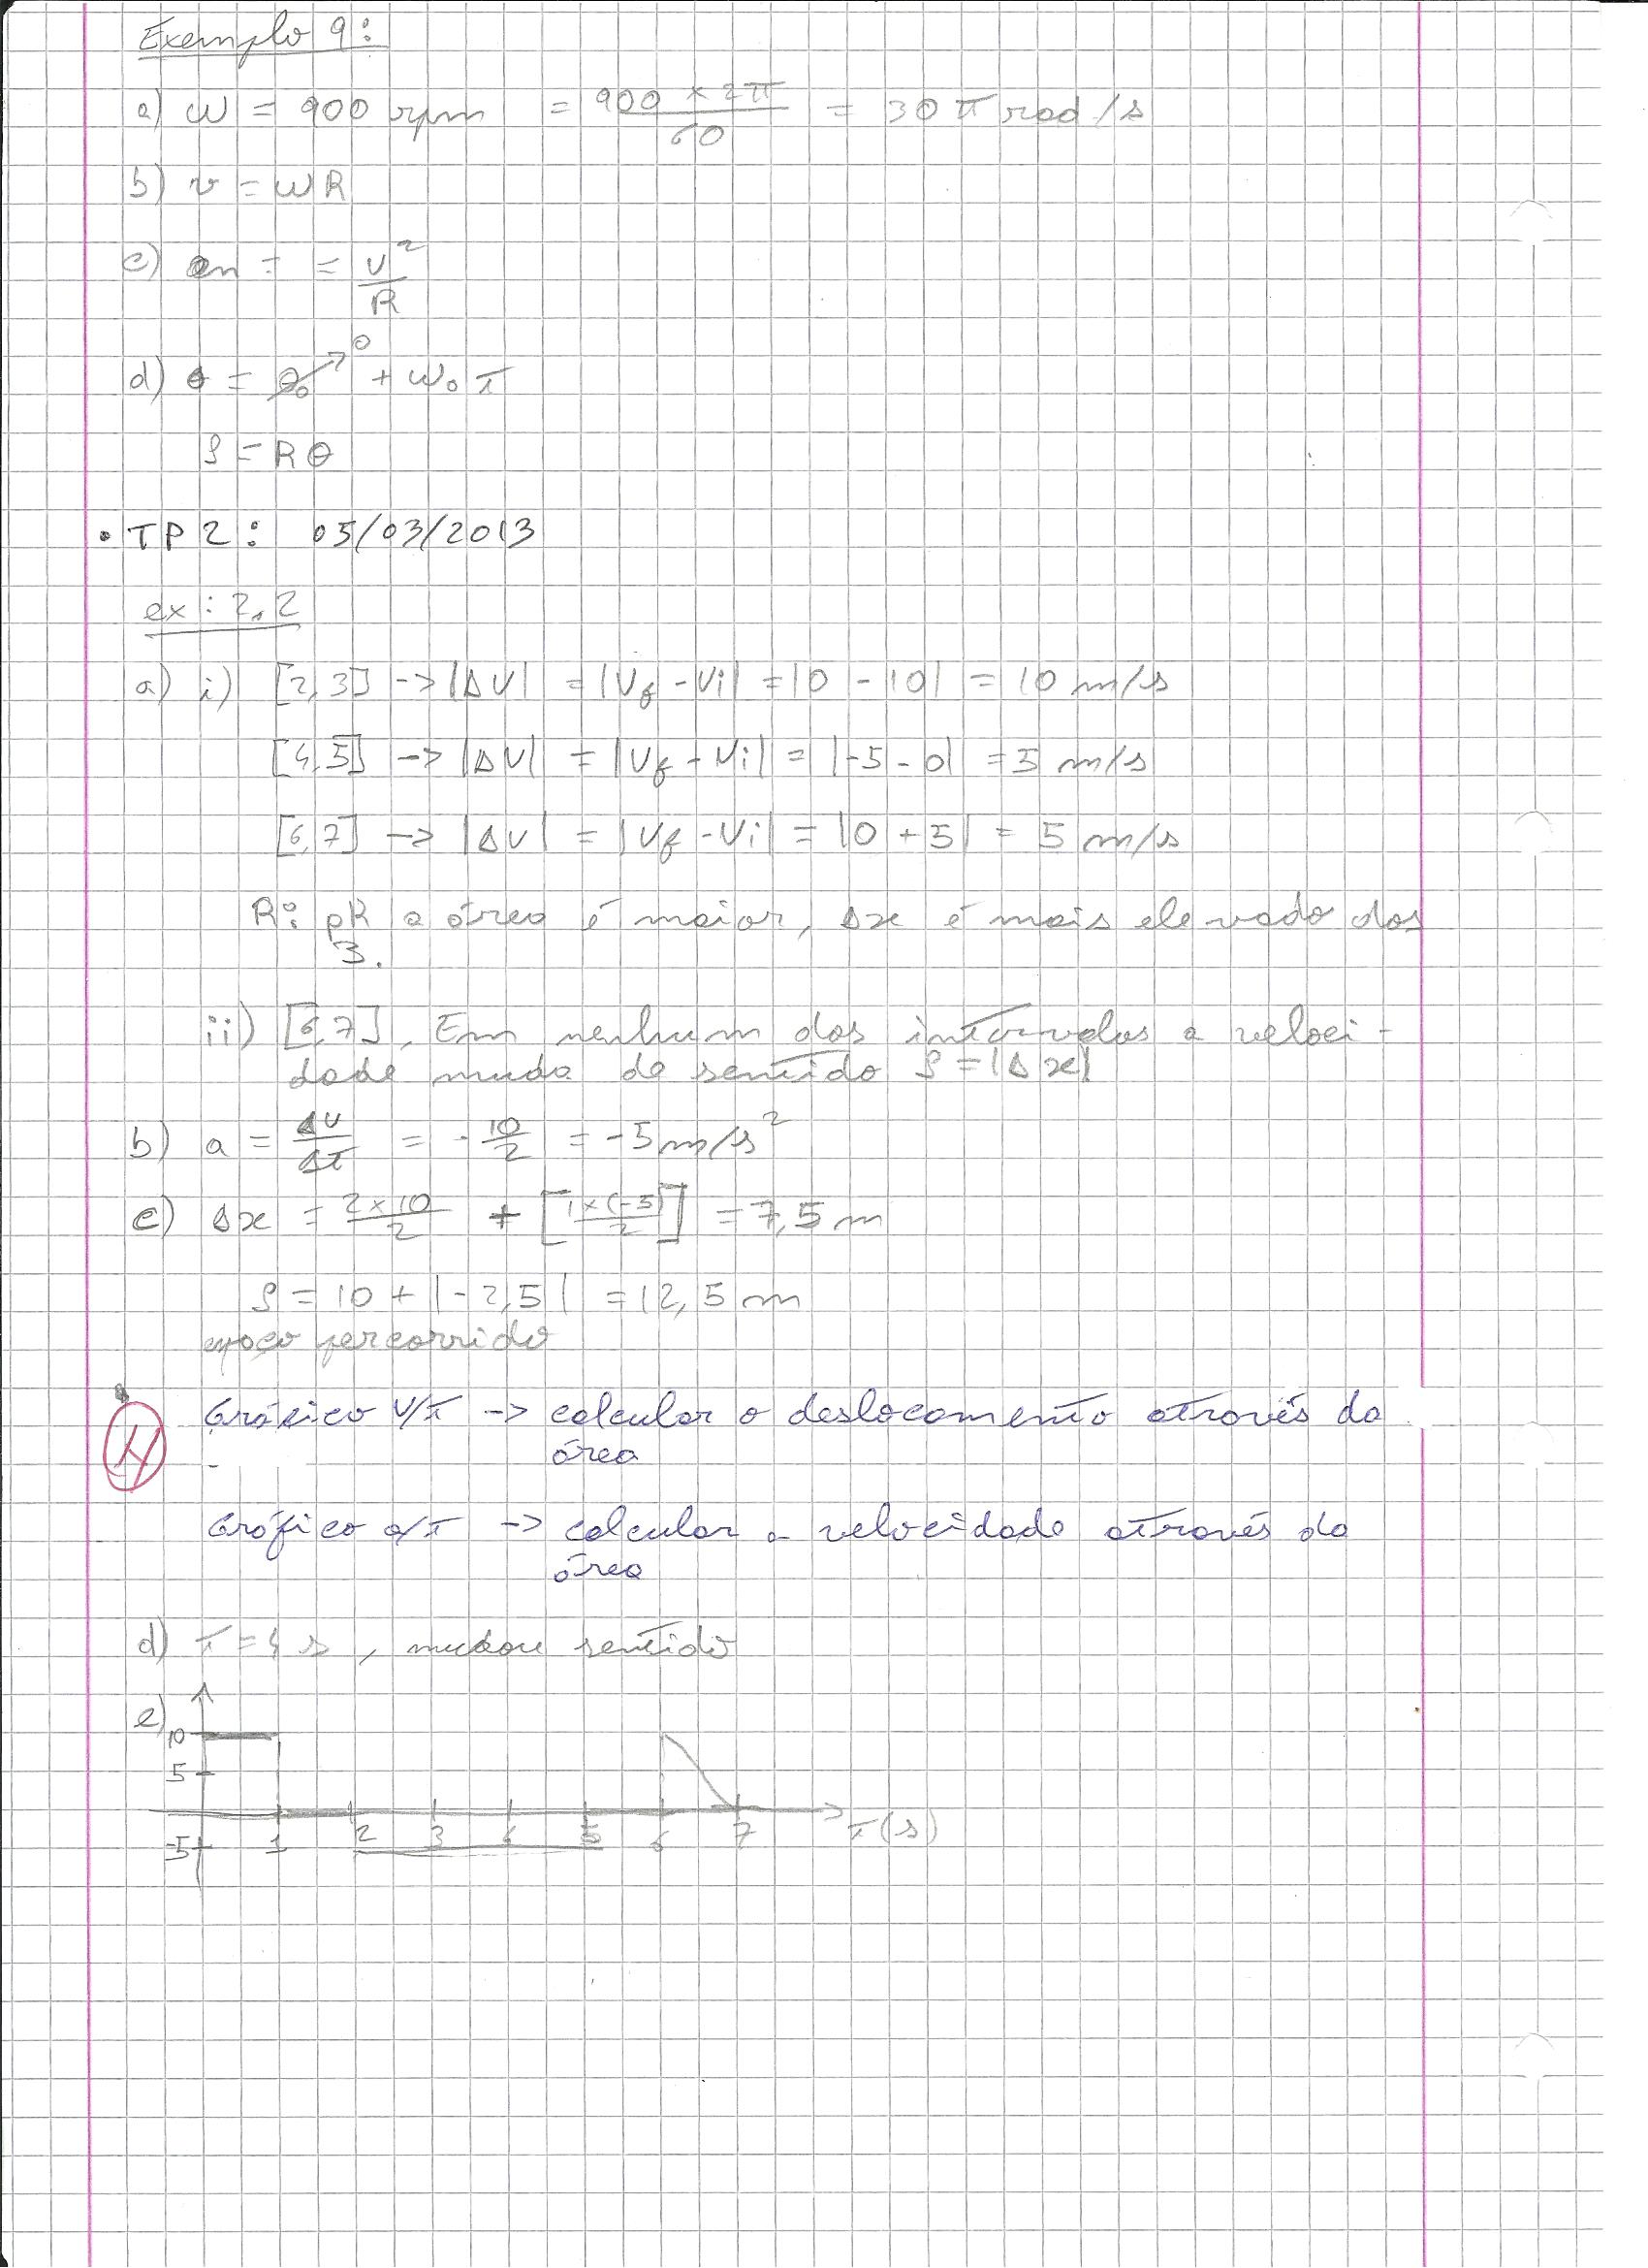 Exemplo 9:
a) ω = 900 rpm = 900 × 2π / 60 = 30 π rad/s
b) v = ωR
c) an = = v² / R
d) θ = θ₀ → 0 + ω₀ t
S = Rθ
• TP2: 05/03/2013
ex: 2.2
a) i) [2,3] -> |Δv| = |vf - vi| = |0 - 10| = 10 m/s
[4,5] -> |Δv| = |vf - vi| = |-5 - 0| = 5 m/s
[6,7] -> |Δv| = |vf - vi| = |0 + 5| = 5 m/s
R: pk a área é maior, Δx é mais elevado dos
3.
ii) [6,7], Em nenhum dos intervalos a veloci-
dade muda de sentido S = |Δx|
b) a = Δv / Δt = - 10/2 = -5 m/s²
c) Δx = 2×10 / 2 + [1×(-5) / 2] = 7,5 m
S = 10 + |-2,5| = 12,5 m
espaço percorrido
Gráfico v/t -> calcular o deslocamento através da
área
Gráfico a/t -> calcular a velocidade através da
área
d) t = 4 s, mudou sentido
e)
10
5
-5
1 2 3 4 5 6 7 t(s)